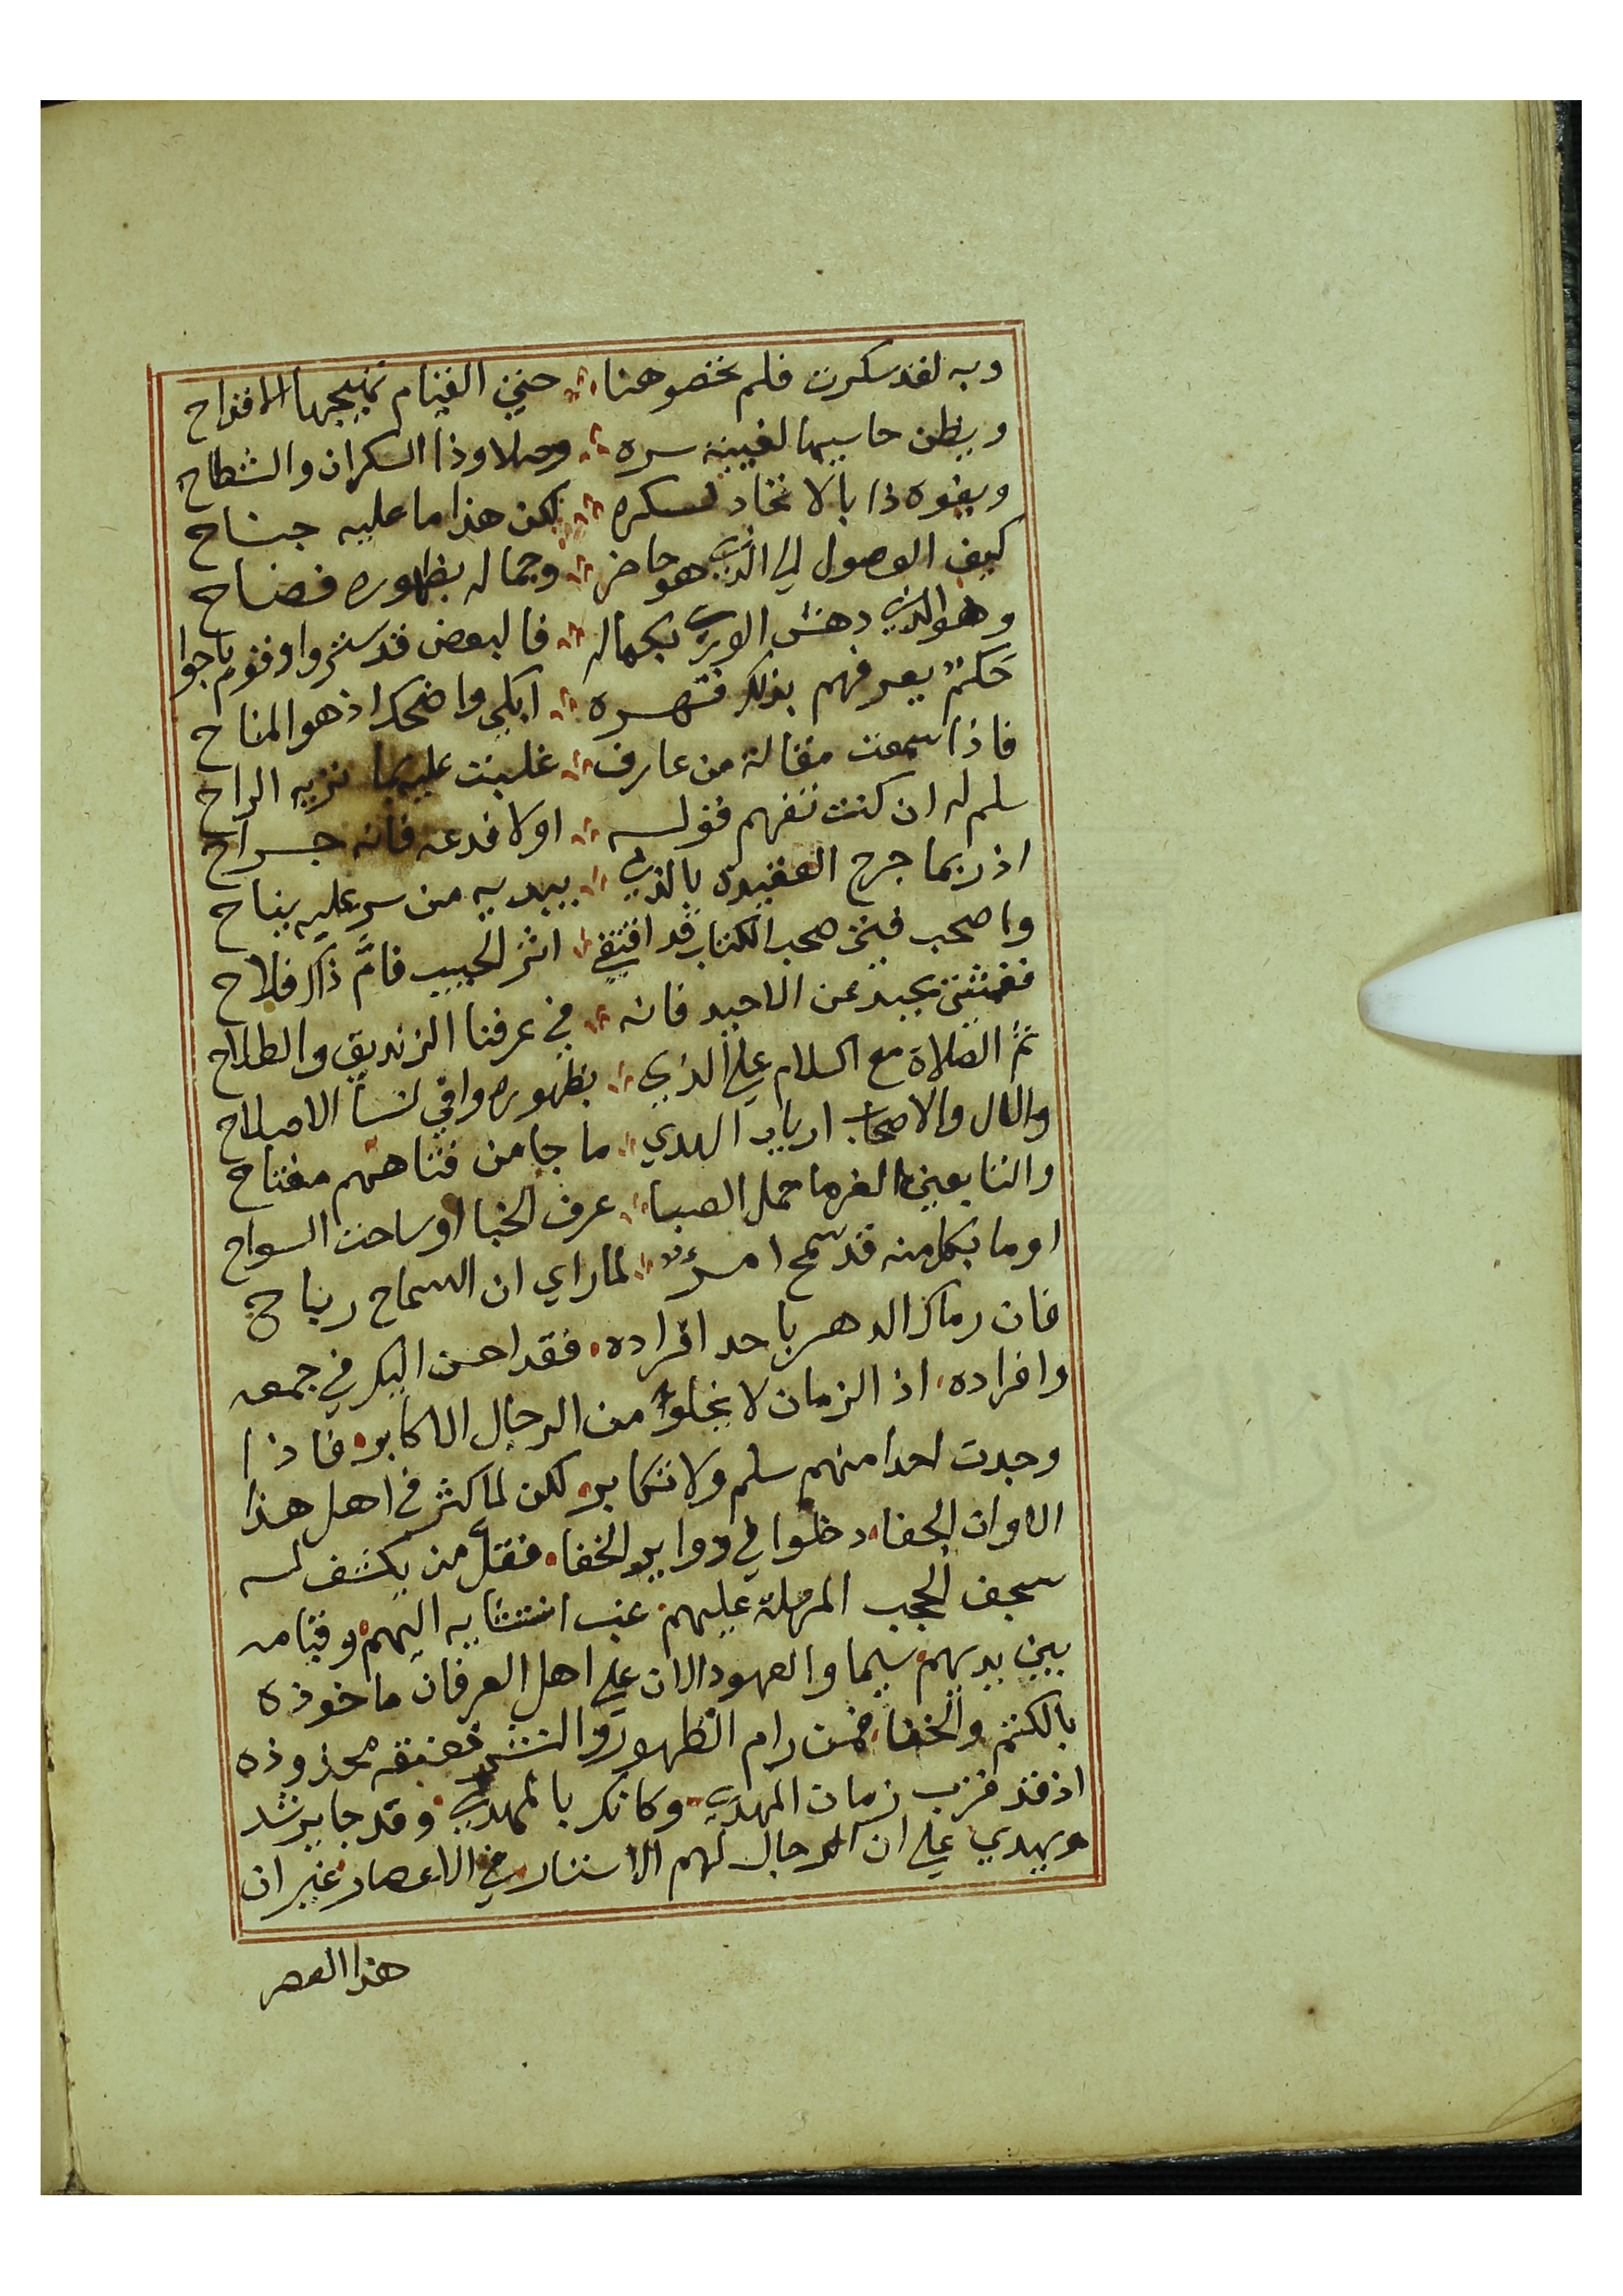 وبه لقد سكرت فلم تخصو هنا حتى القيام تهيجها الاقداح
ويظن حاسيها لغيبة سره وصلا وذا السكران والشطاح
ويفوه ذا بالاتحاد لسكره لكن هذا ما عليه جناح
كيف الوصول الى الذي هو حاضر وجماله بظهوره فضاح
وهو الذي دهش الورى بجماله فالبعض قد ستروا وقوم باحوا
حكم يعرفهم بذلك فتهره ابكي واضحك اذ هو المناح
فاذا سمعت مقالة من عارف غلبت عليه بما تريه الراح
سلم له ان كنت تفهم قوله اولا فدعه فانه جراح
اذ ربما جرح العقيدة بالذي يبديه من سر عليه يناح
واصحب فتى صحب الكتاب قد اقتفى اثر الحبيب فامّ ذاك فلاح
ففتى يحيد عن الاحيد فانه في عرفنا الزنديق والطلاح
ثم الصلاة مع السلام على الذي بظهوره وافى لنسأ الاصلاح
والال والاصحاب ارباب الهدي ما جا من فتاهم مفتاح
والتابعين الغر ما حمل الصبا عرف الخبا او ساحت السواح
او ما بكل منه قد سمح امرؤ لما راي ان السماح رباح
فان رماك الدهر باحد افراده فقد احسن اليك في جمعه
وافراده اذ الزمان لا يخلو من الرجال الاكابر فاذا
وجدت احدا منهم سلم ولا تكابر لكن لما كثر في اهل هذا
الاوان الجفا دخلوا في دواير الخفا فقل من يكشف له
سجف الحجب المرسلة عليهم عند انتسابه اليهم وقيامه
بين يديهم سيما والعهود الان على اهل العرفان ماخوذه
بالكتم والخفا فمن رام الظهور والنشر فعنقه محذوذه
اذ قد قرب زمان المهدي وكانك بالمهدي وقد جا يرشد
ويهدي على ان الرجال لهم الاستتار في الاعصار غير ان
هذا العصر